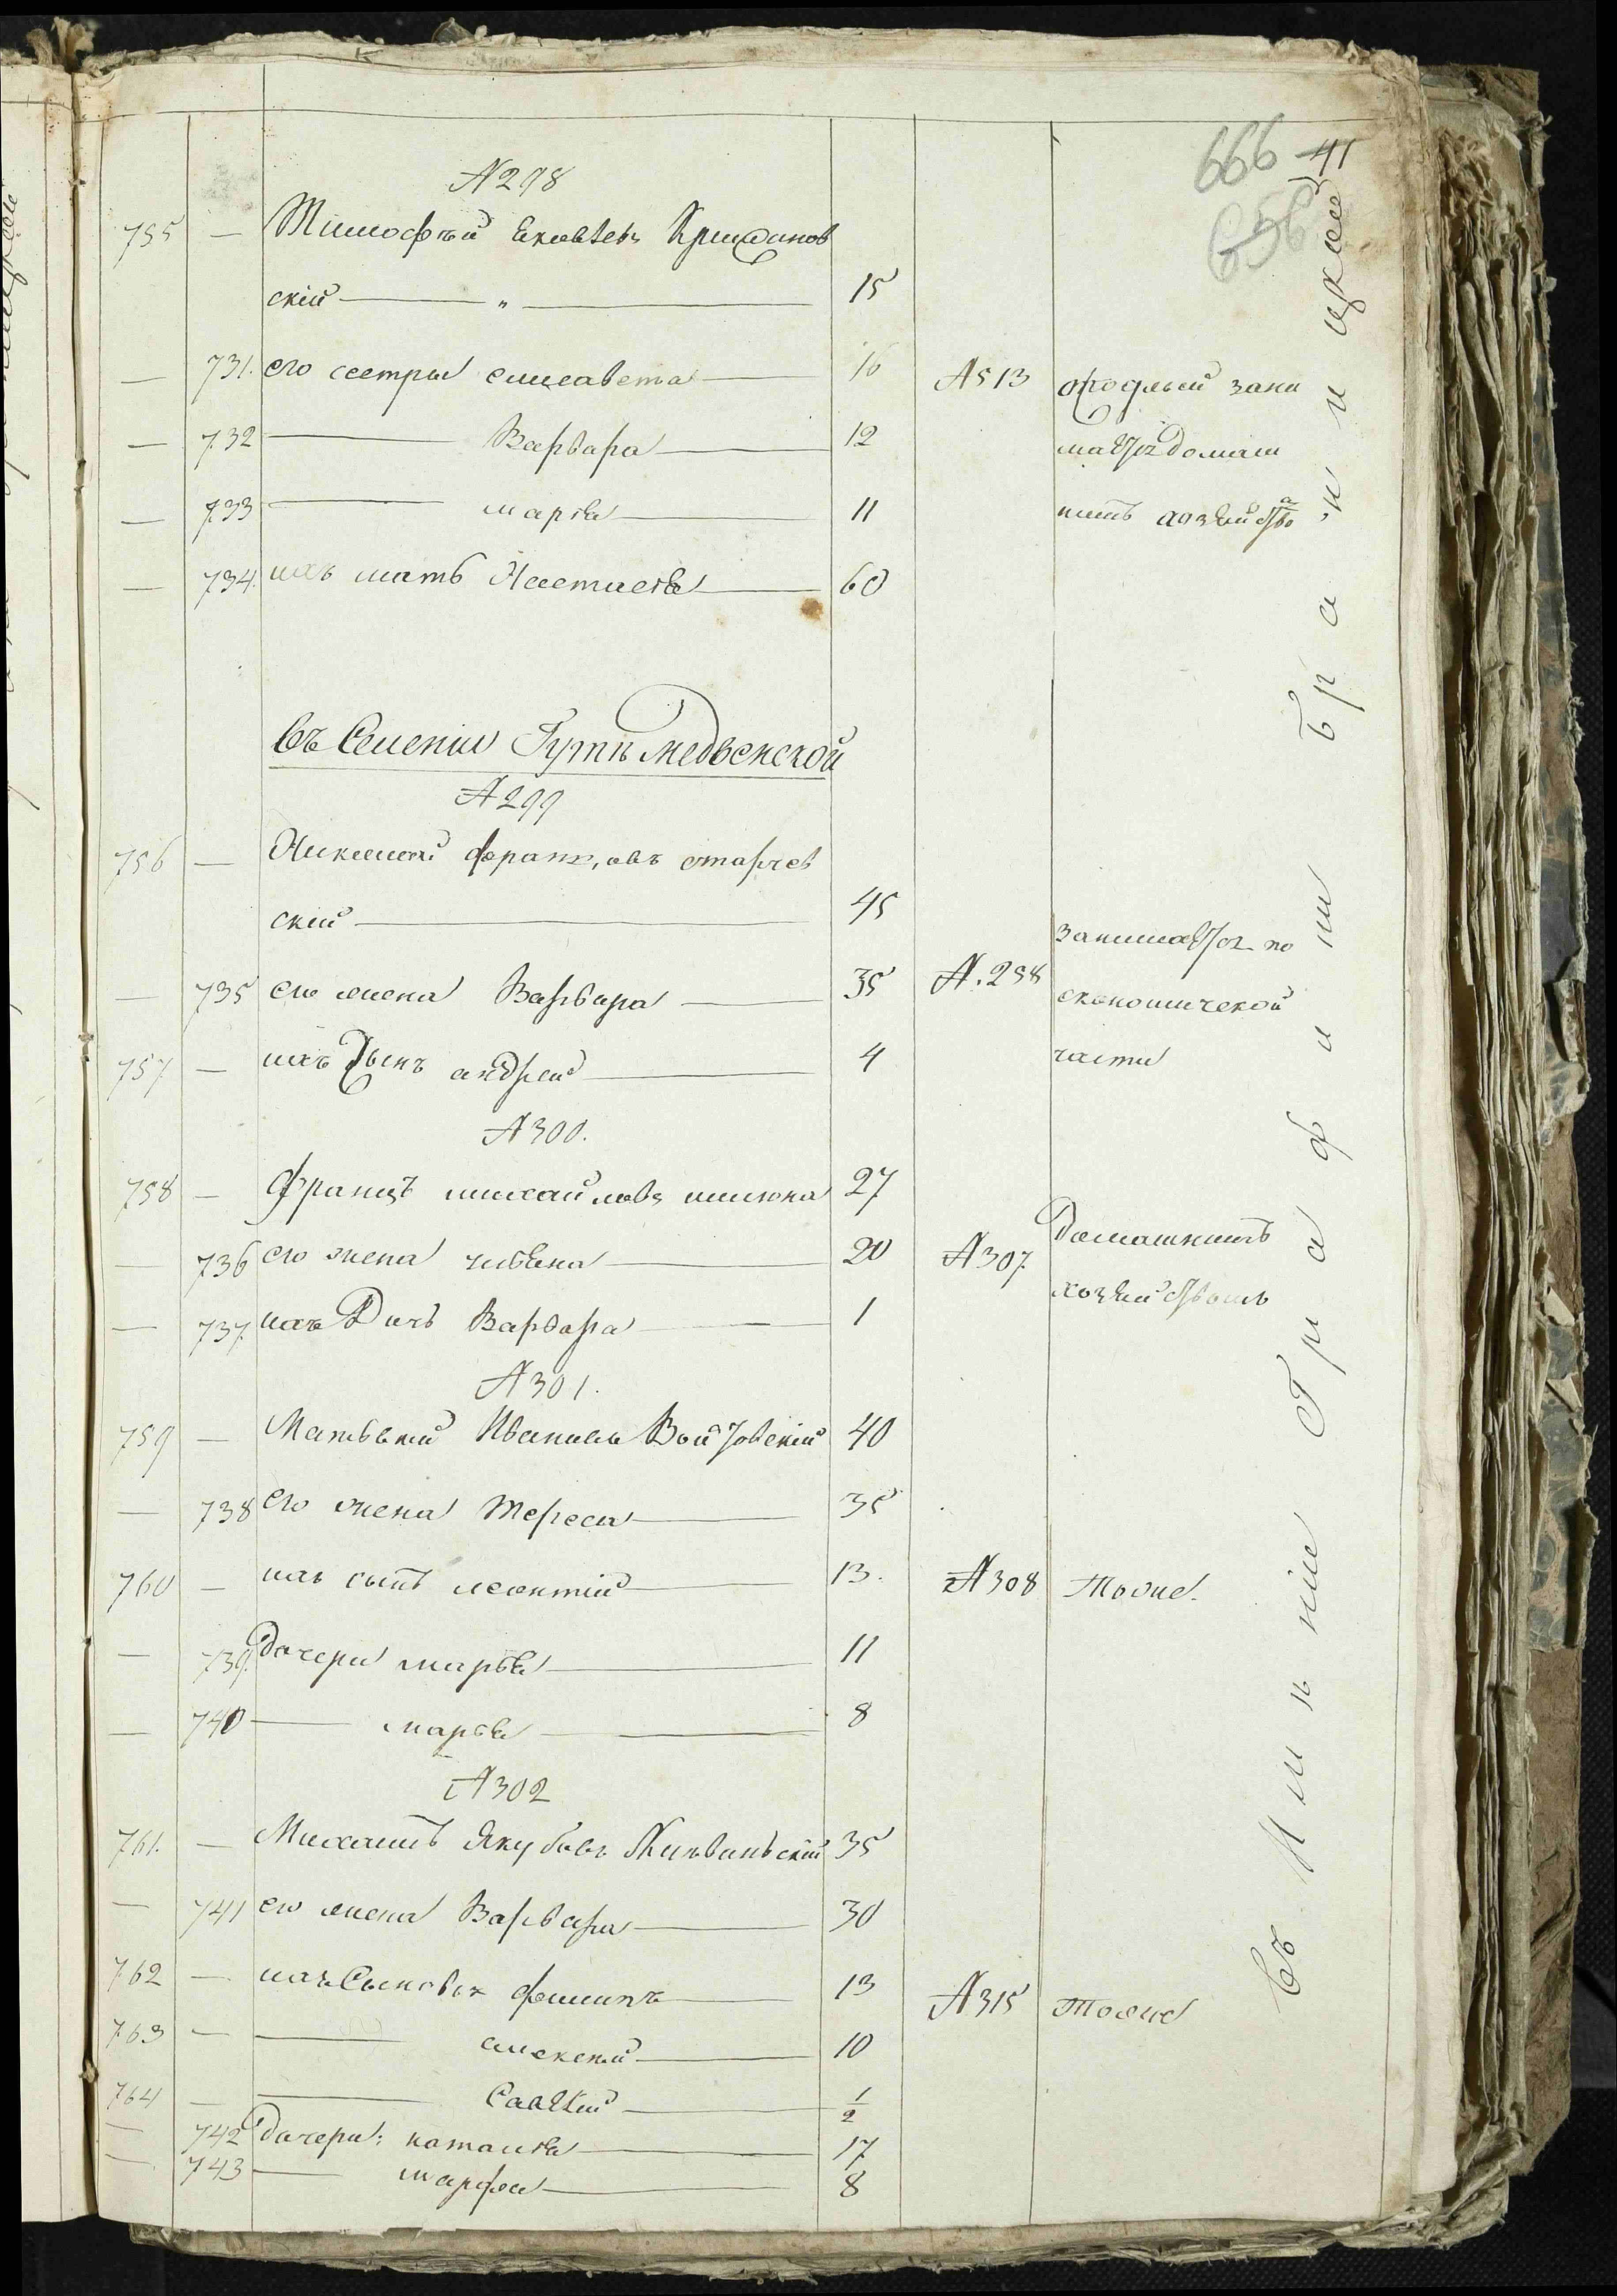 666 341
656
№ 298
755 — Тимофѣй Яковлевъ Кришанов
скій — „ — 15
— 731. его сестры елисавета — 16 № 513 отрослый зани
— 732 — Варвара — 12 маются домаш
— 733 — марья — 11 нимъ хозяйство
— 734. ихъ мать Настасія — 60
Въ Селеніи Гутѣ Медвенской
№ 299
756 — Николай францовъ старчев
скій — 45
занимается по
— 735 его жена Варвара — 35 №. 298 економической
757 — ихъ Сынъ андрей — 4 части
№ 300.
758 — францъ михайловъ 27
— 736 его жена — 20 № 307 Домашнимъ
хозяйствомъ
— 737. ихъ Дочь Варвара — 1
№ 301.
759 — Матвѣй Ивановъ Войтовскій 40
— 738 его жена Тереса — 35
760 — ихъ сынъ леонтій — 13. № 308 Тоже.
— 739. дочери марья — 11
— 740 — марья — 8
№ 302
761. — Михаилъ Якубовъ 35
— 741 его жена Варвара — 30
762 — ихъ Сыновья филипъ — 13 № 315 тоже
763 — — алексей — 10
764 — — Савелій — 1/2
— 742 Дочери: наталія — 17
— 743 — марфа — 8
Въ Имѣніи Графини Браницкой